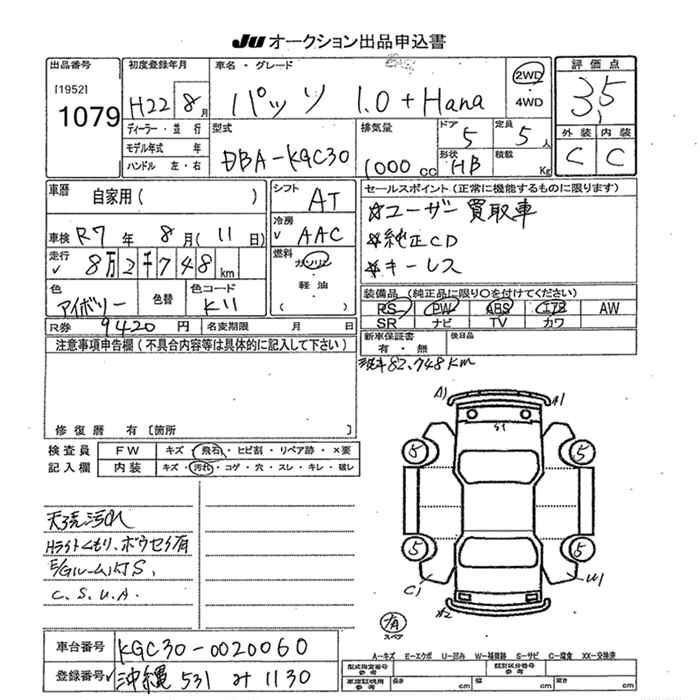 JU オークション出品申込書
出品番号
[1952]
1079
初度登録年月
H22 8月
車名・グレード
パッソ 1.0 + Hana
2WD
・
4WD
評価点
3.5
外装 内装
C C
ディーラー・並行
モデル年式 年
ハンドル 左・右
型式
DBA-KGC30
排気量
1000 cc
ドア
5
定員
5 人
形状
HB
積載
Kg
車歴
自家用( )
車検 R7 年 8 月( 11 日)
走行 8万2千748 km
色
アイボリー
色替
色コード
K11
R券 9420 円 名変期限 月 日
シフト
AT
冷房
AAC
燃料
ガソリン
・
軽油
・
( )
セールスポイント(正常に機能するものに限ります)
☆ユーザー買取車
☆純正CD
☆キーレス
装備品 (純正品に限り○を付けてください)
PS PW ABS エアB AW
SR ナビ TV カワ
新車保証書
有・無
後日品
注意事項申告欄(不具合内容等は具体的に記入して下さい)
現車82,748km
修復歴 有〔箇所
検査員
記入欄
FW キズ・飛石・ヒビ割・リペア跡・×要
内装 キズ・汚れ・コゲ・穴・スレ・キレ・破レ
天張汚れ
Hライトくもり、ボウセイ有
E/Gルーム小キS、
C.S.U.A.
A1 A1
S1
5 5
5 5
C1 U1
A2
有
スペア
車台番号 KGC30-0020060
登録番号 沖縄 531 さ 1130
A-キズ E-エクボ U-凹み W-補修跡 S-サビ C-腐食 XX-交換済
型式指定番号
参考
類別区分番号
参考
車庫証明用
参考
長さ cm
幅 cm
高さ cm